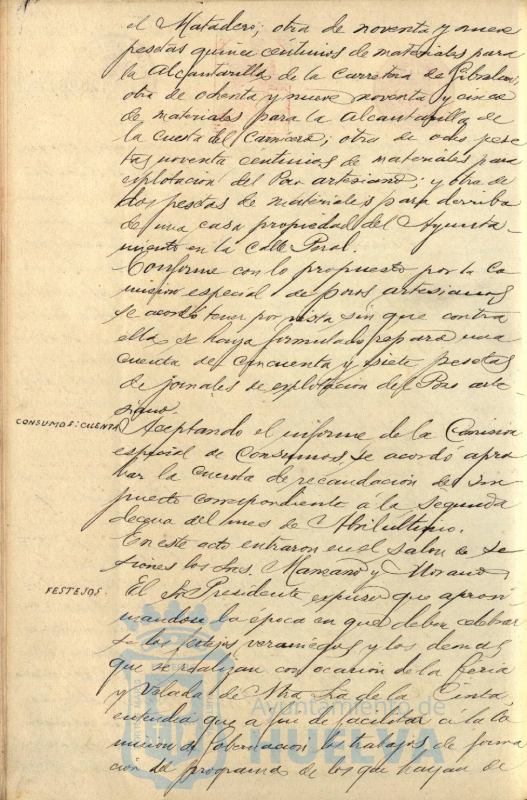 el Matadero; otra de noventa y nueve
pesetas quince céntimos de materiales para
la Alcantarilla de la Carretera de Gibraleon;
otra de ochenta y nueve noventa y cinco
de materiales para la Alcantarilla de
la cuesta del Carnicero; otra de ocho pese
tas noventa centimos de materiales para
esplotacion del Pozo artesiano; y otra de
dos pesetas de materiales para derribo
de una casa propiedad del Ayunta-
miento en la calle Peral.
Conforme con lo propuesto por la Co
mision especial de pozos artesianos
se acordó tener por vista sin que contra
ella se haya formulado reparo una
cuenta de cincuenta y siete pesetas
de jornales de esplotacion del Pozo arte
siano.
CONSUMOS: CUENTA
Aceptando el informe de la Comision
especial de Consumos, se acordó apro
bar la cuenta de recaudacion del im
puesto correspondiente á la segunda
decena del mes de Abril ultimo.
En este acto entraron en el salon de se
siones los Sres. Manzano y Morano
FESTEJOS.
El Sr. Presidente expuso que aproxi
mandose la época en que deben celebrar
se los festejos veraniegos y los demas
que se realizan con ocasion de la feria
y Velada de Ntra Sra de la Cinta,
entendia que a fin de facilitar á la Co
mision de Gobernacion los trabajos de forma
cion del programa de los que hayan de
Ayuntamiento de
HUELVA